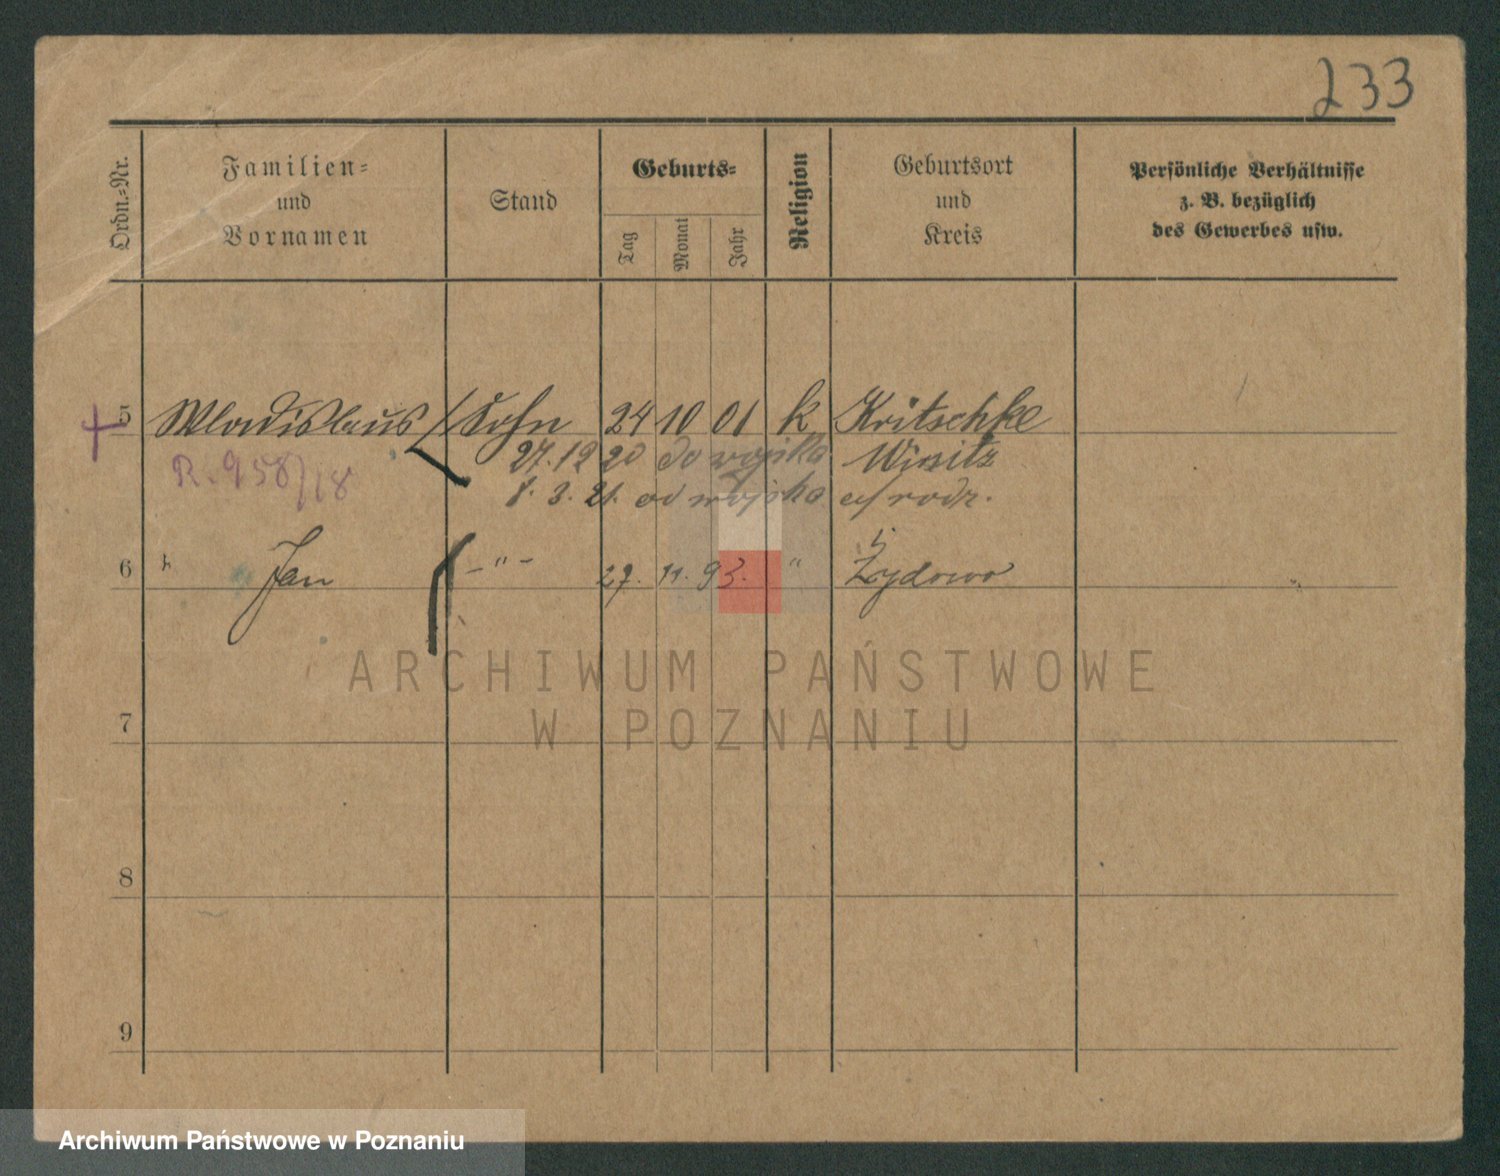 233
Ordn.=Nr.
Familien=
und
Vornamen
Stand
Geburts=
Tag
Monat
Jahr
Religion
Geburtsort
und
Kreis
Persönliche Verhältnisse
z. B. bezüglich
des Gewerbes usw.
5 Wladislaus Sohn 24 10 01 k Kritschke
27.12 20 do wojska Witsitz
R. 958/18
8. 3. 21. od wojska a/ rodz.
6 " Jan -"- 27. 11. 93. " Żydowo "
7
8
9
ARCHIWUM PAŃSTWOWE
W POZNANIU
Archiwum Państwowe w Poznaniu